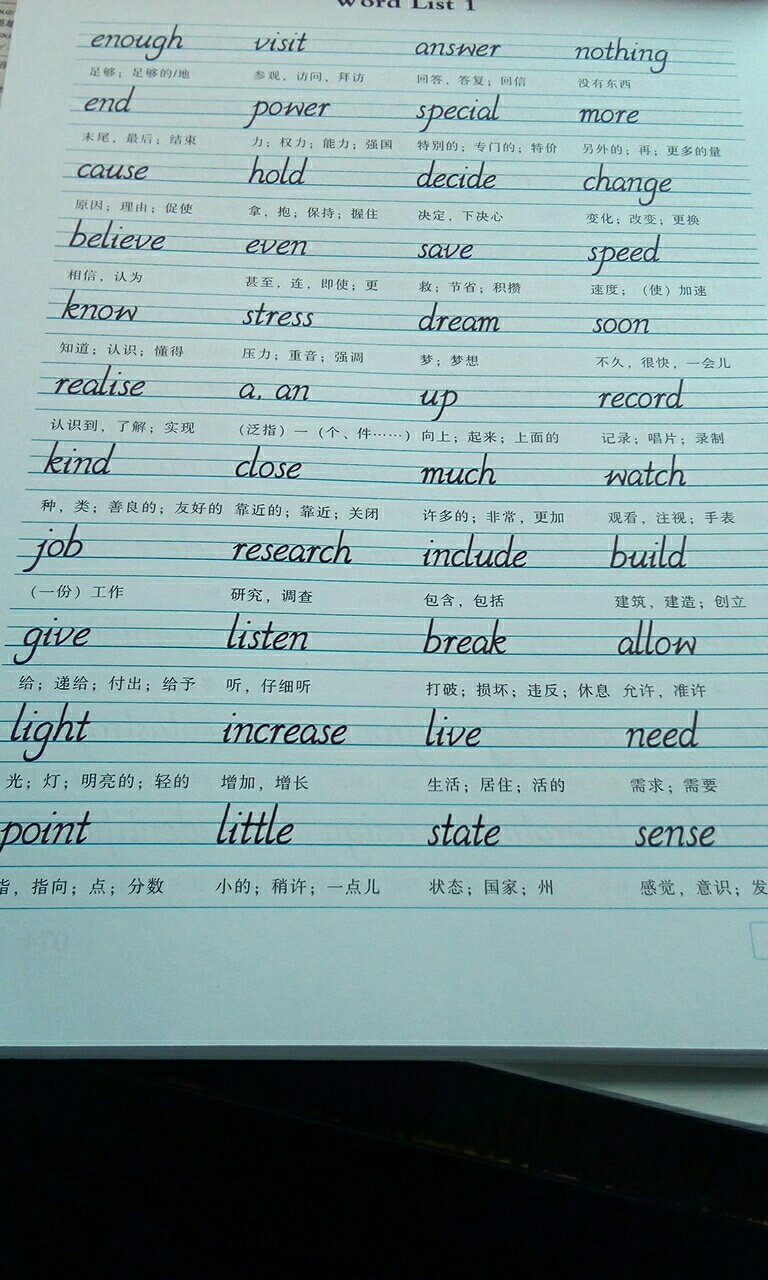 Word List 1
enough visit answer nothing
足够；足够的/地 参观，访问，拜访 回答，答复；回信 没有东西
end power special more
末尾，最后；结束 力；权力；能力；强国 特别的；专门的；特价 另外的；再；更多的量
cause hold decide change
原因；理由；促使 拿，抱；保持；握住 决定，下决心 变化；改变；更换
believe even save speed
相信，认为 甚至，连，即使；更 救；节省；积攒 速度；（使）加速
know stress dream soon
知道；认识；懂得 压力；重音；强调 梦；梦想 不久，很快，一会儿
realise a, an up record
认识到，了解；实现 （泛指）一（个、件……） 向上；起来；上面的 记录；唱片；录制
kind close much watch
种，类；善良的；友好的 靠近的；靠近；关闭 许多的；非常，更加 观看，注视；手表
job research include build
（一份）工作 研究，调查 包含，包括 建筑，建造；创立
give listen break allow
给；递给；付出；给予 听，仔细听 打破；损坏；违反；休息 允许，准许
light increase live need
光；灯；明亮的；轻的 增加，增长 生活；居住；活的 需求；需要
point little state sense
指，指向；点；分数 小的；稍许；一点儿 状态；国家；州 感觉，意识；发